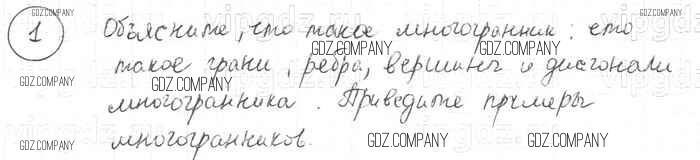 1 Объясните, что такое многогранник; что
такое грани, рёбра, вершины и диагонали
многогранника. Приведите примеры
многогранников.
GDZ.COMPANY
GDZ.COMPANY
GDZ.COMPANY
GDZ.COMPANY
GDZ.COMPANY
GDZ.COMPANY
GDZ.COMPANY
GDZ.COMPANY
GDZ.COMPANY
GDZ.COMPANY